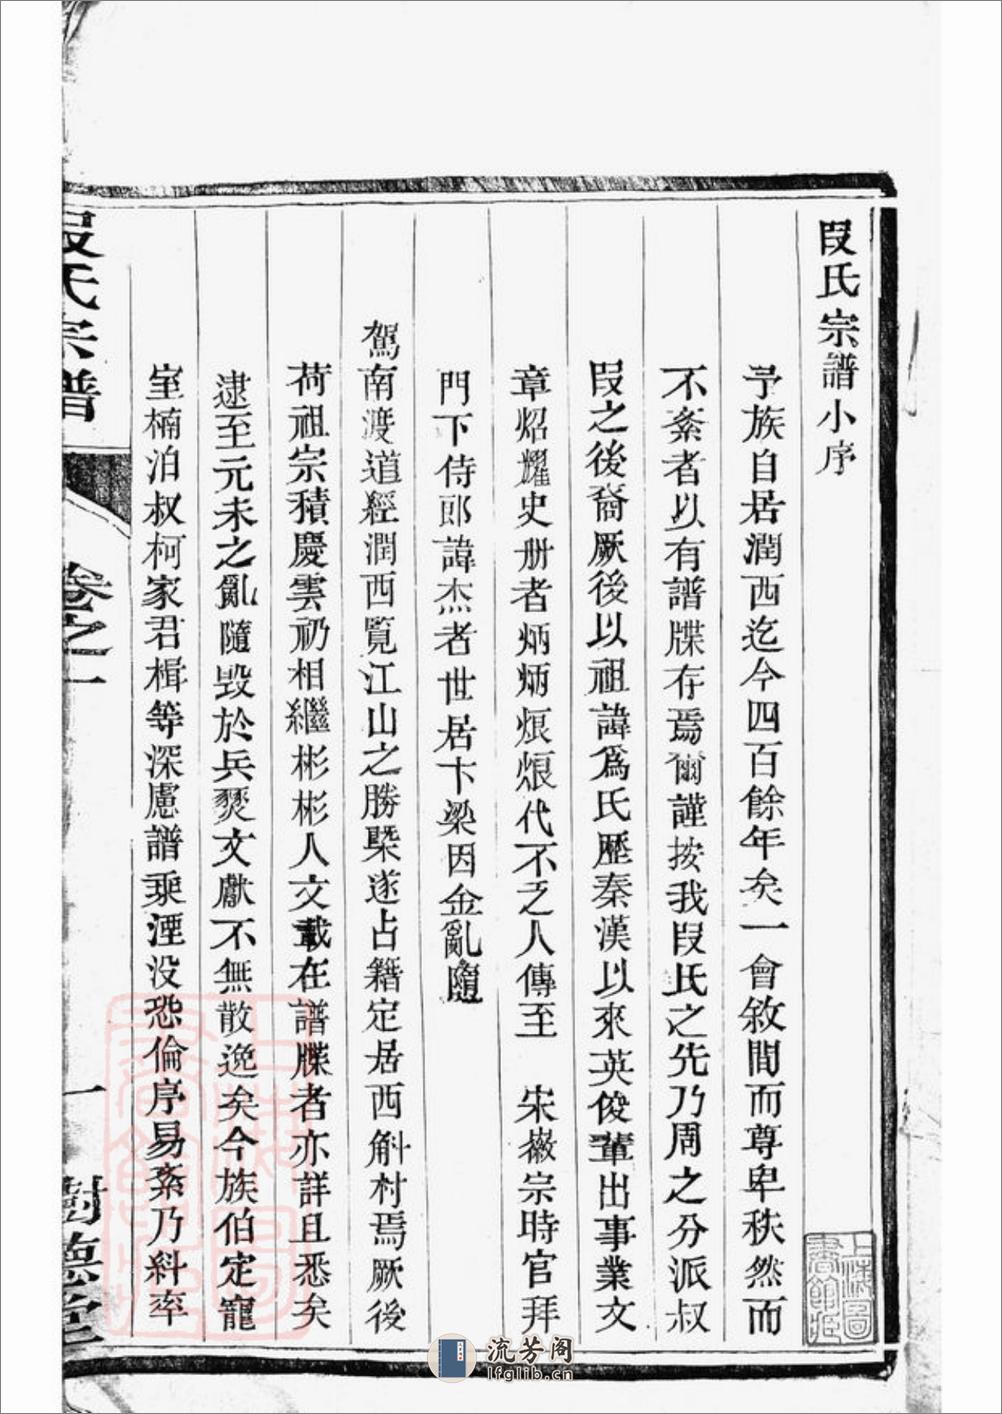 段氏宗譜小序
予族自居潤西迄今四百餘年矣一會敘間而尊卑秩然而
不紊者以有譜牒存焉爾謹按我段氏之先乃周之分派叔
段之後裔厥後以祖諱爲氏歷秦漢以來英俊輩出事業文
章炤耀史册者炳炳烺烺代不乏人傳至　宋徽宗時官拜
門下侍郎諱杰者世居卞梁因金亂隨
駕南渡道經潤西覧江山之勝槩遂占籍定居西斛村焉厥後
荷祖宗積慶雲礽相繼彬彬人文載在譜牒者亦詳且悉矣
逮至元末之亂隨毀於兵燹文獻不無散逸矣今族伯定寵
室楠泊叔柯家君楫等深慮譜乘湮没恐倫序易紊乃糾率
段氏宗譜
卷之一
一
樹德堂
上海圖書館藏
流芳阁
lfglib.cn